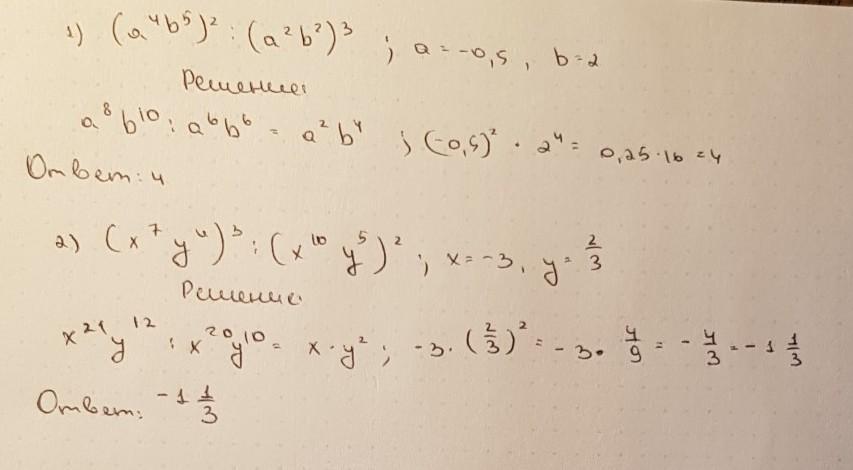 1) (a⁴b⁵)² : (a²b²)³ ; a = -0,5 , b = 2
Решение:
a⁸b¹⁰ : a⁶b⁶ = a²b⁴ ; (-0,5)² · 2⁴ = 0,25·16 = 4
Ответ: 4
2) (x⁷y⁴)³ : (x¹⁰y⁵)² ; x = -3, y = 2/3
Решение:
x²¹y¹² : x²⁰y¹⁰ = x · y² ; -3 · (2/3)² = -3 · 4/9 = - 4/3 = -1 1/3
Ответ: -1 1/3